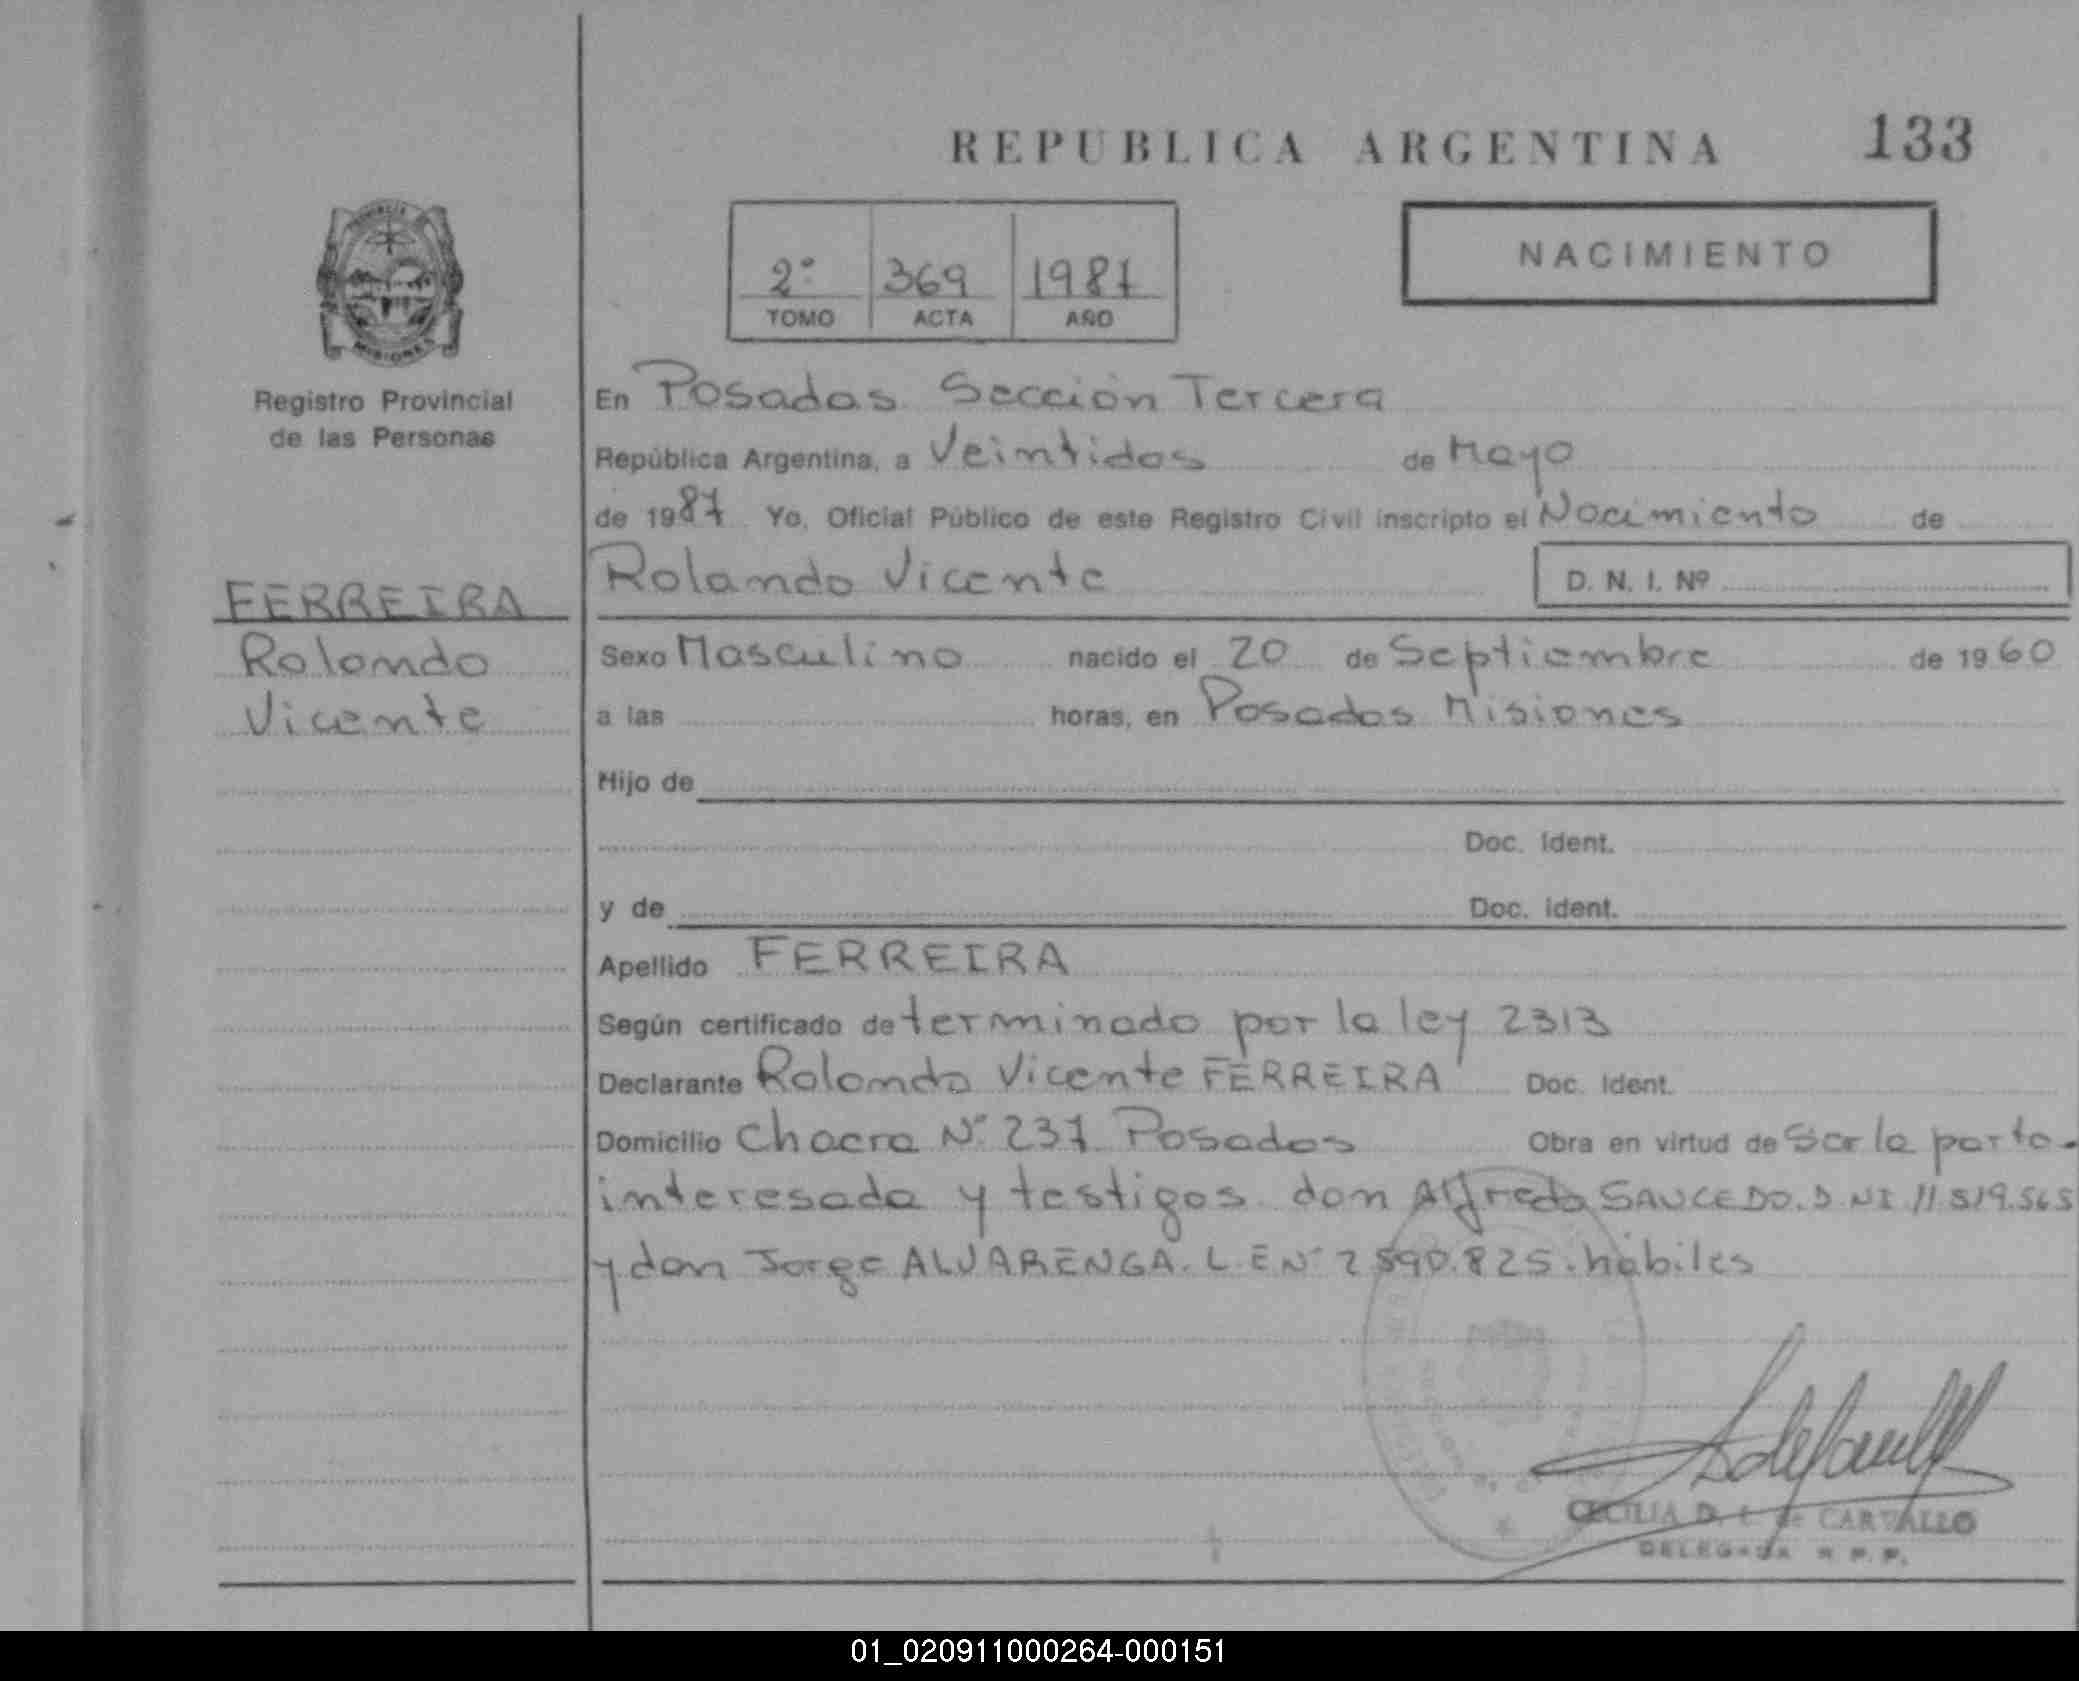 REPUBLICA ARGENTINA 133
2º 369 1987
TOMO ACTA AÑO
NACIMIENTO
PROVINCIA
MISIONES
Registro Provincial
de las Personas
FERREIRA
Rolando
Vicente
En Posadas Sección Tercera
República Argentina, a Veintidos de Mayo
de 1987 Yo, Oficial Público de este Registro Civil inscripto el Nacimiento de
Rolando Vicente D. N. I. Nº
Sexo Masculino nacido el 20 de Septiembre de 1960
a las horas, en Posadas Misiones
Hijo de
Doc. Ident.
y de Doc. Ident.
Apellido FERREIRA
Según certificado determinado por la ley 2313
Declarante Rolando Vicente FERREIRA Doc. Ident.
Domicilio Chacra Nº 237 Posadas Obra en virtud de Ser la parte
interesada y testigos don Alfredo SAUCEDO. D NI 11.519.565
y don Jorge ALVARENGA. L.E Nº 2590.825. hábiles
CECILIA D. de CARVALLO
DELEGADA R P. P.
01_020911000264-000151